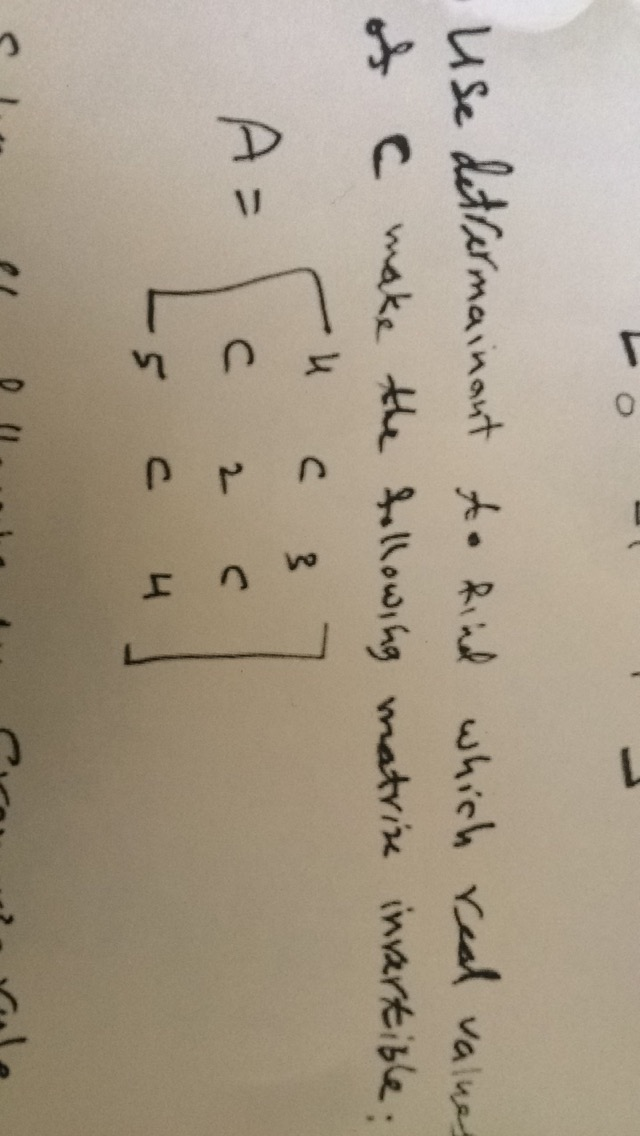 Use determainant to find which real values
of C make the following matrix invertible:
A = [ 4 C 3
C 2 C
5 C 4 ]